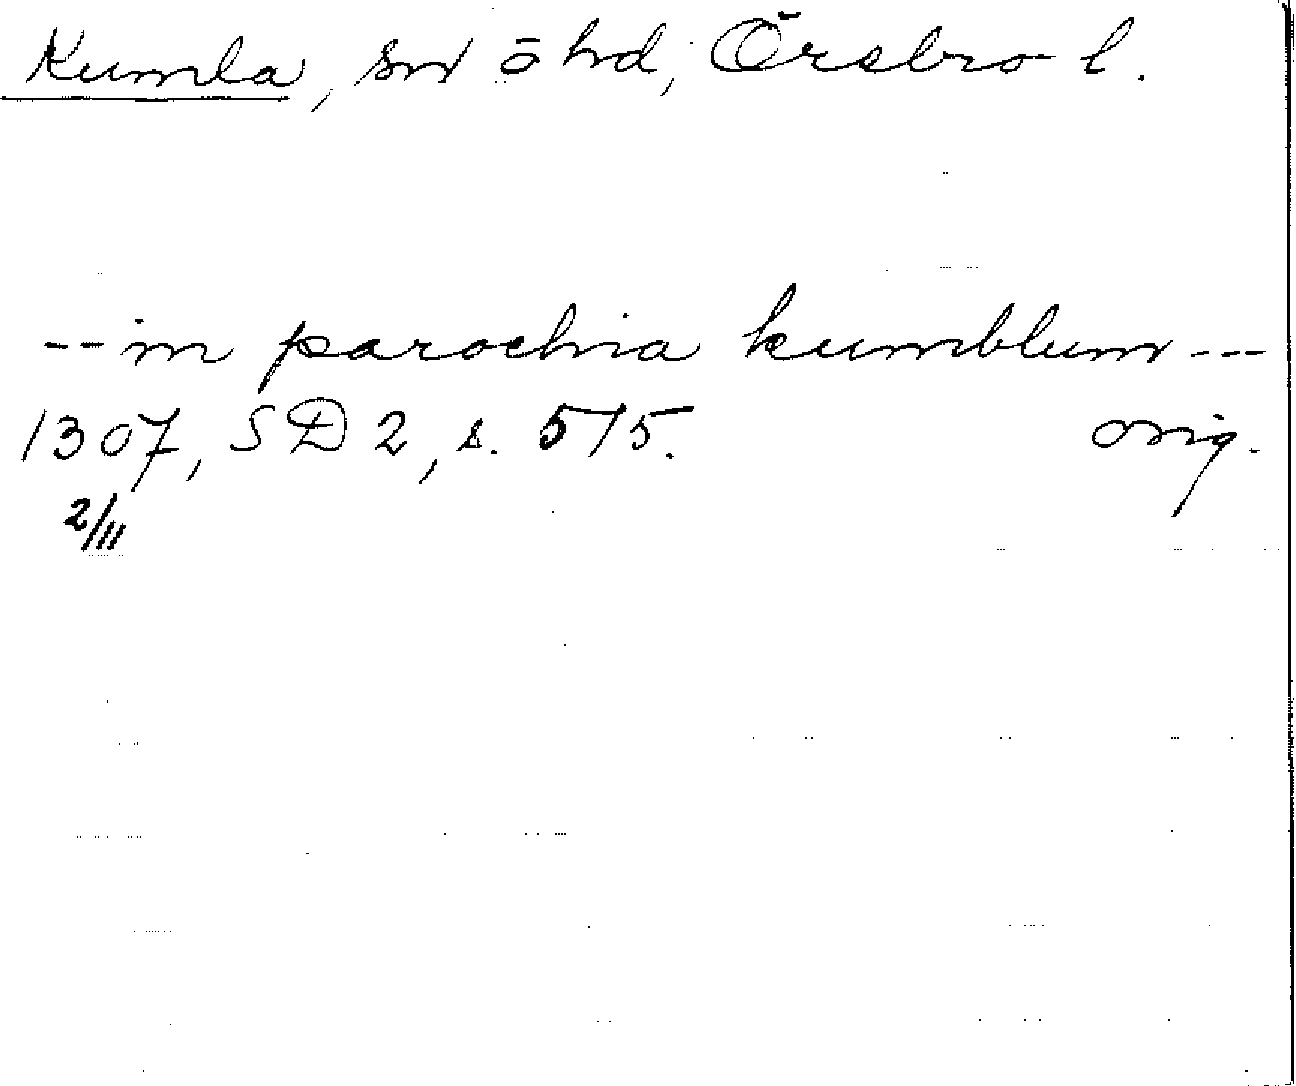 Kumla, sn o hd, Örebro l.
-- in parochia kumblum ---
1307, SD 2, s. 575. orig.
2/11